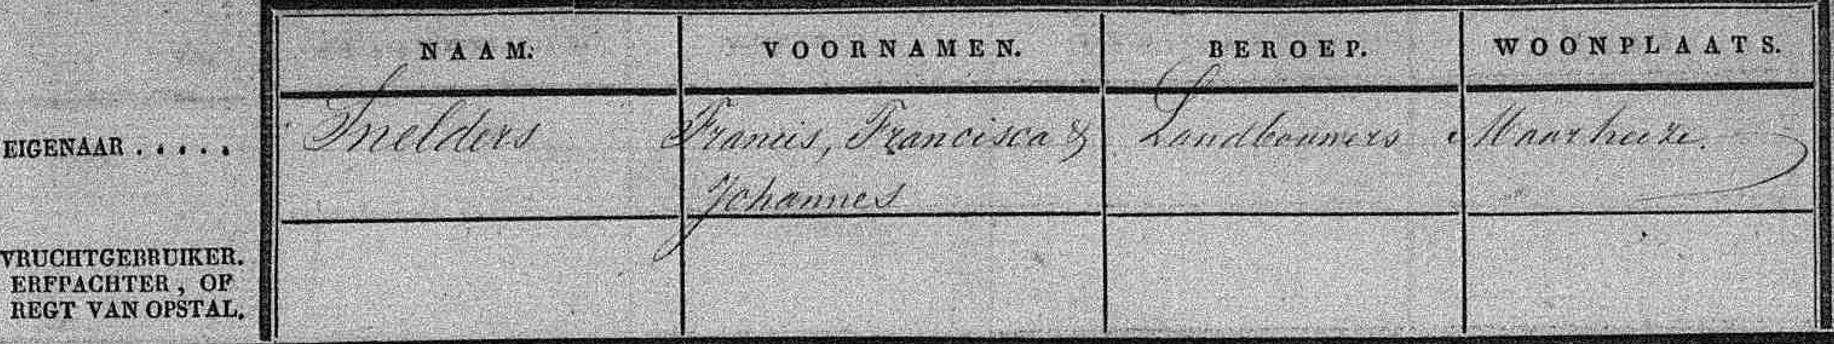 NAAM. VOORNAMEN. BEROEP. WOONPLAATS.
EIGENAAR . . . . . Snelders Francis, Francisca & Landbouwers Maarheeze.
Johannes
VRUCHTGEBRUIKER.
ERFPACHTER, OF
REGT VAN OPSTAL.